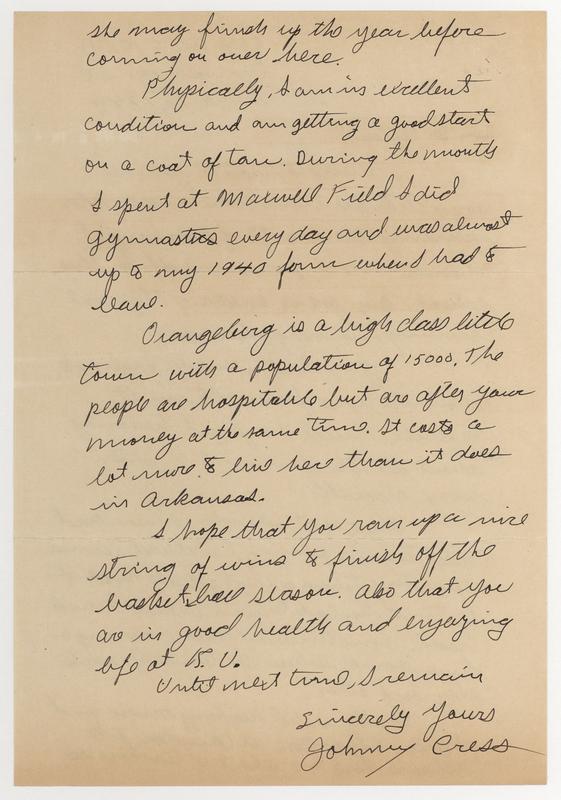 she may finish up the year before
coming on over here.
Physically, I am in excellent
condition and am getting a good start
on a coat of tan. During the month
I spent at Maxwell Field I did
gymnastics every day and was almost
up to my 1940 form when I had to
leave.
Orangeburg is a high class little
town with a population of 15000. The
people are hospitable but are after your
money at the same time. It costs a
lot more to live here than it does
in Arkansas.
I hope that you run up a nice
string of wins to finish off the
basketball season. Also that you
are in good health and enjoying
life at K. U.
Until next time, I remain
Sincerely Yours
Johnny Cress